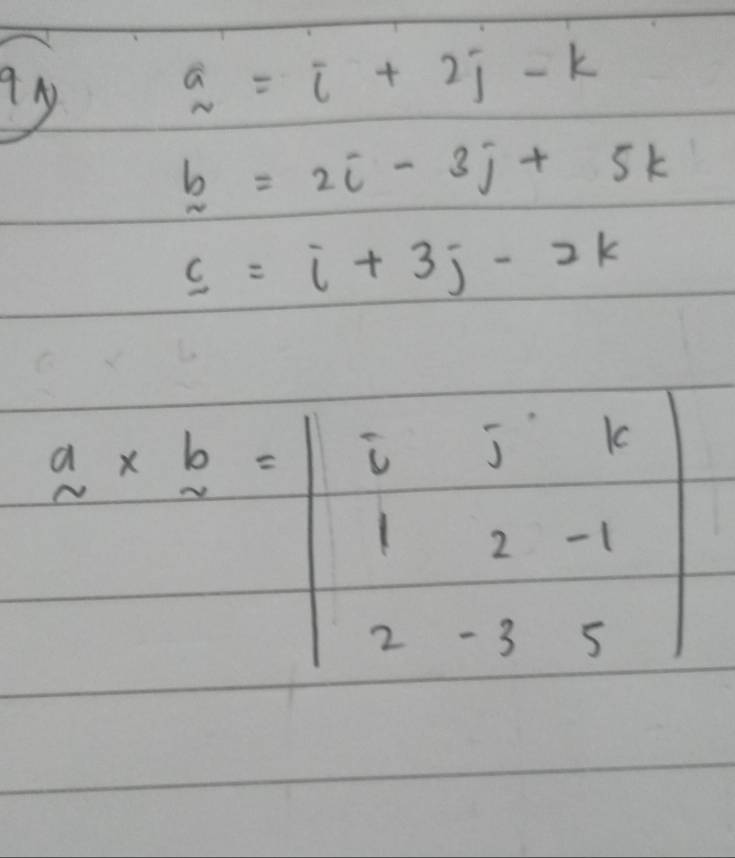 9 a = i + 2j - k
b = 2i - 3j + 5k
c = i + 3j - 2k
a × b = | i j k |
1 2 -1
2 -3 5